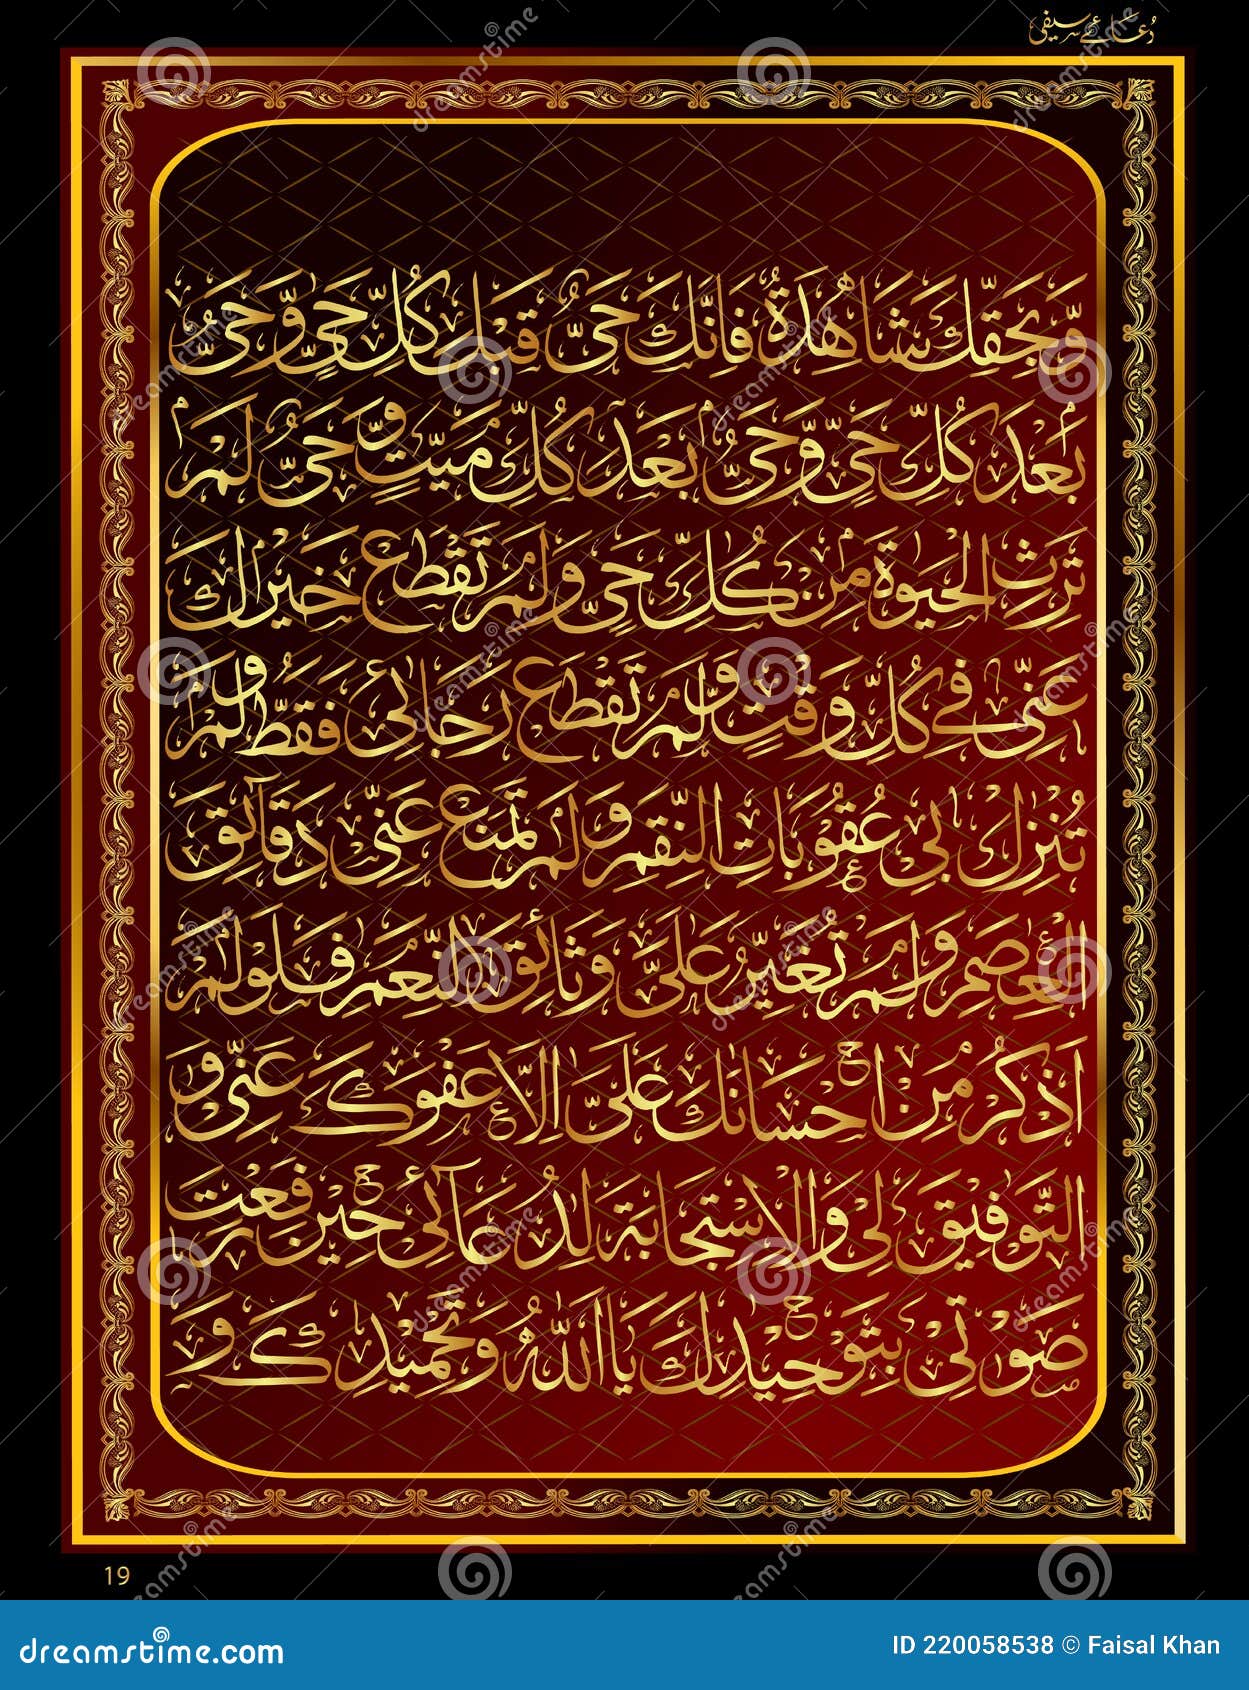 دُعائے سیفی
وَّبِحَقِّكَ شَاهِدَةٌ فَاِنَّكَ حَيٌّ قَبْلَ كُلِّ حَيٍّ وَّحَيٌّ
بَعْدَ كُلِّ حَيٍّ وَّحَيٌّ بَعْدَ كُلِّ مَيِّتٍ وَحَيٌّ لَمْ
تَرِثِ الْحَيٰوةَ مِنْ كُلِّ حَيٍّ وَلَمْ تَقْطَعْ خَيْرَكَ
عَنِّيْ فِيْ كُلِّ وَقْتٍ وَلَمْ تَقْطَعْ رَجَائِيْ فَقَطُّ وَلَمْ
تُنْزِلْ بِيْ عُقُوْبَاتِ النِّقَمِ وَلَمْ تَمْنَعْ عَنِّيْ دَقَآئِقَ
الْعِصَمِ وَلَمْ تُغَيِّرْ عَلَيَّ وَثَائِقَ النِّعَمِ فَلَوْ لَمْ
اَذْكُرْ مِنْ اِحْسَانِكَ عَلَيَّ اِلَّا عَفْوَكَ عَنِّيْ وَ
التَّوْفِيْقَ لِيْ وَالْاِسْتِجَابَةَ لِدُعَآئِيْ حِيْنَ رَفَعْتُ
صَوْتِيْ بِتَوْحِيْدِكَ يَا اَللّٰهُ وَتَحْمِيْدِكَ وَ
19
dreamstime.com
ID 220058538 © Faisal Khan